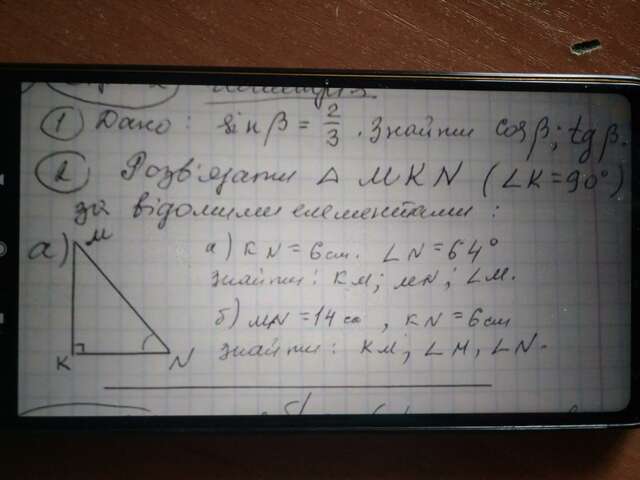 ① Дано: sin β = 2/3. Знайти cos β; tg β.
② Розв'язати △ MKN (∠K=90°)
за відомими елементами:
а)
M
K
N
а) KN = 6 см. ∠N = 64°
знайти: KM; MN; ∠M.
б) MN = 14 см, KN = 6 см
знайти: KM; ∠M, ∠N.